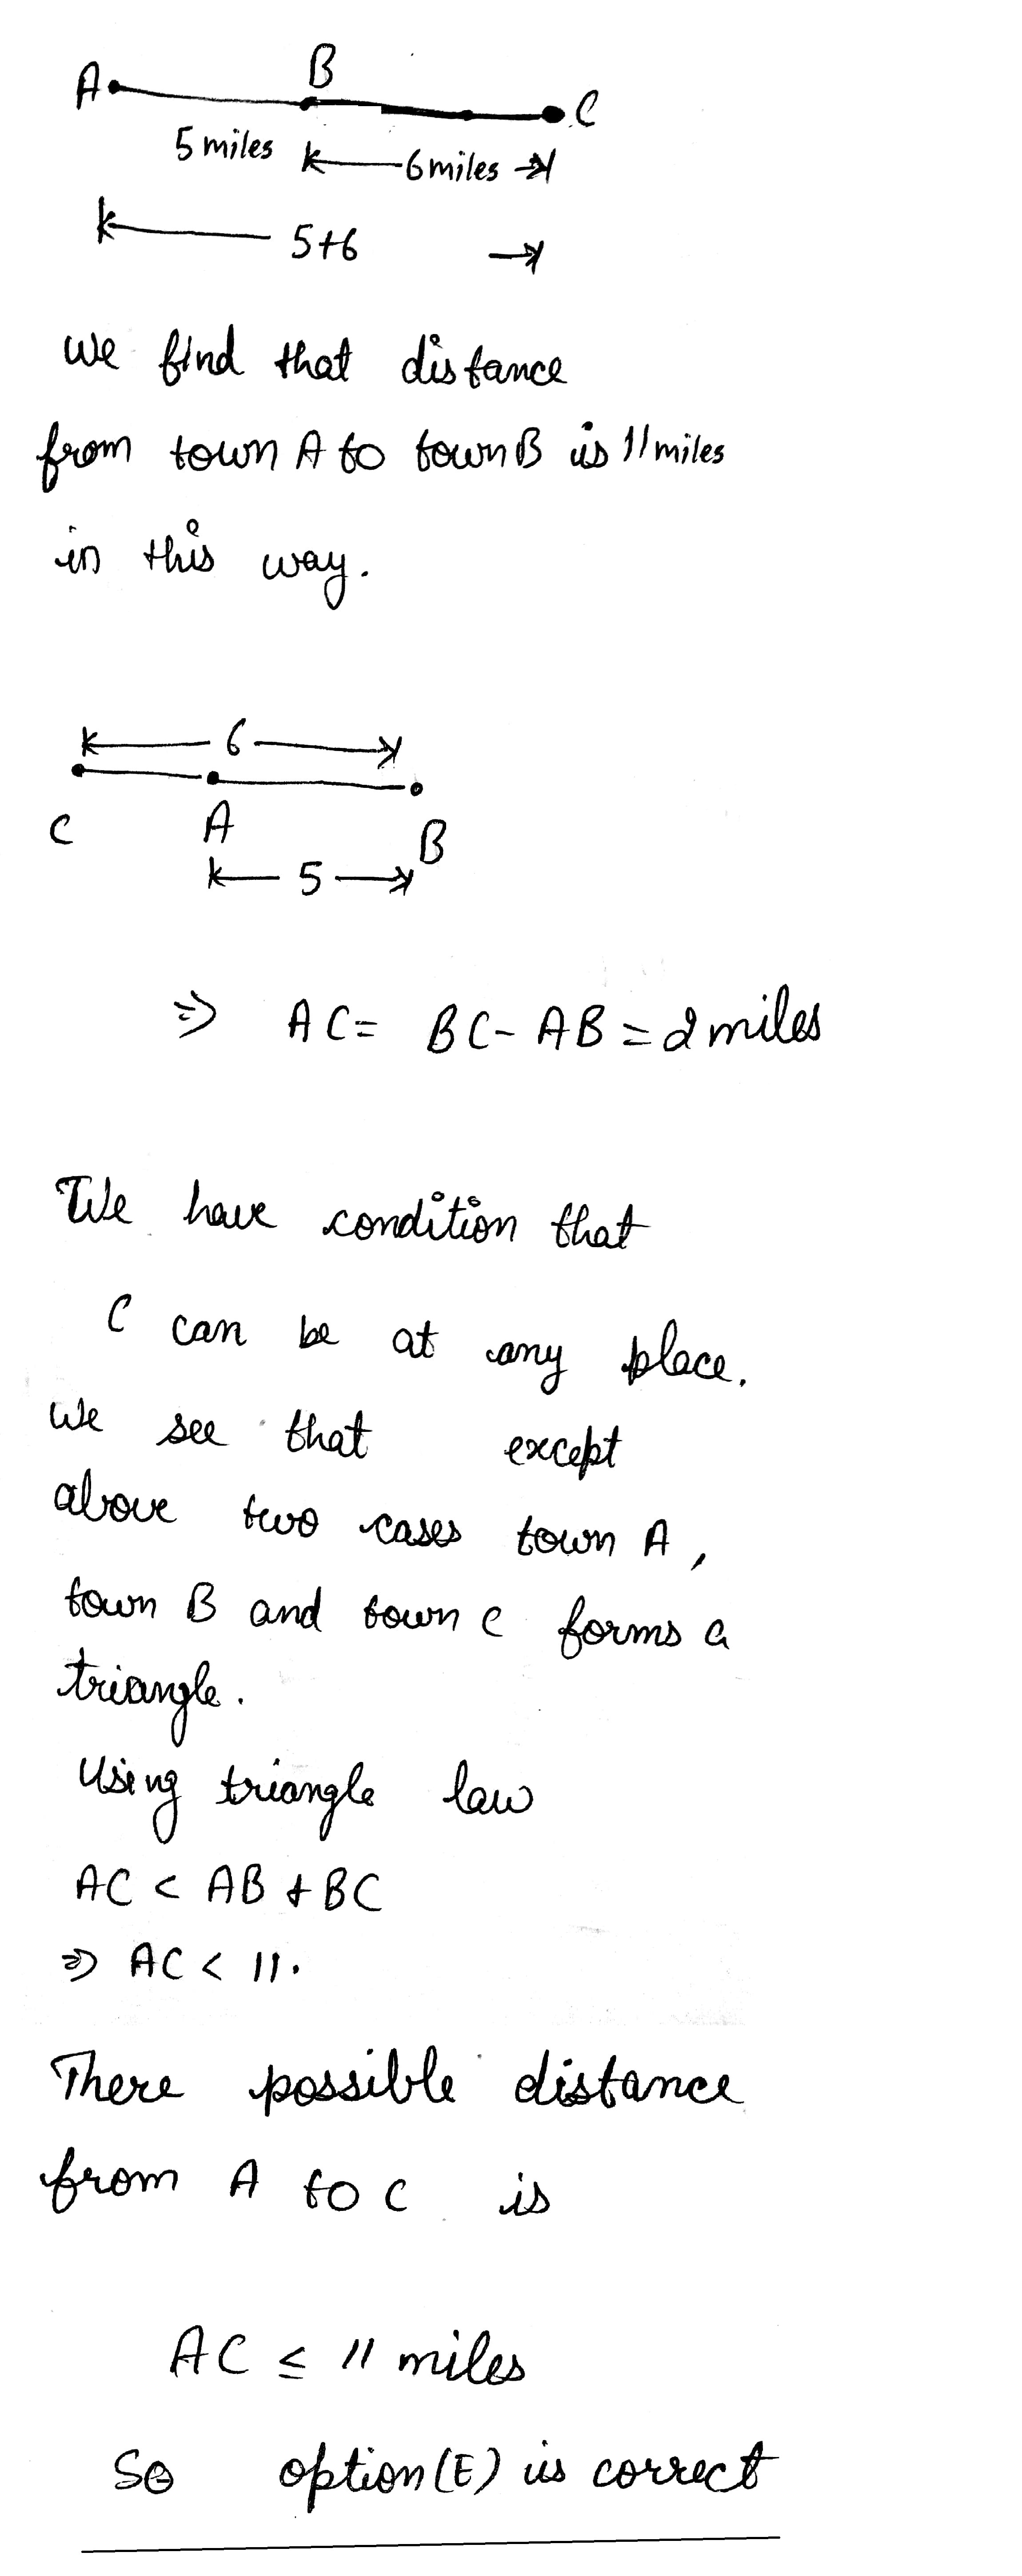 A B C
5 miles 6 miles
5+6
We find that distance
from town A to town B is 11 miles
in this way.
6
C A B
5
⇒ AC = BC - AB = 2 miles
We have condition that
C can be at any place.
We see that except
above two cases town A,
town B and town C forms a
triangle.
Using triangle law
AC < AB + BC
⇒ AC < 11.
There possible distance
from A to C is
AC ≤ 11 miles
So option (E) is correct